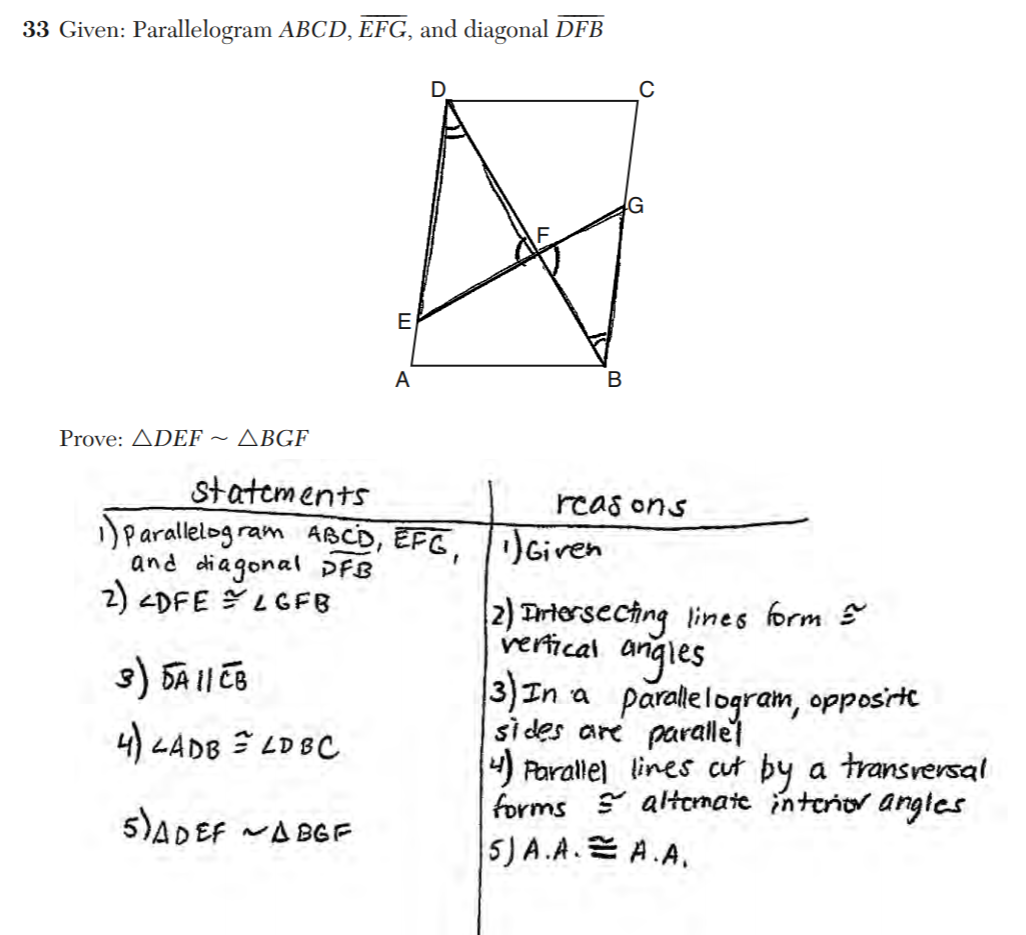 33 Given: Parallelogram ABCD, EFG, and diagonal DFB
D
C
G
F
E
A
B
Prove: △DEF ~ △BGF
statements
reasons
1) Parallelogram ABCD, EFG,
and diagonal DFB
1) Given
2) ∠DFE ≅ ∠GFB
2) Intersecting lines form ≅
vertical angles
3) DA || CB
3) In a parallelogram, opposite
sides are parallel
4) ∠ADB ≅ ∠DBC
4) Parallel lines cut by a transversal
forms ≅ alternate interior angles
5) △DEF ~ △BGF
5) A.A. ≅ A.A.